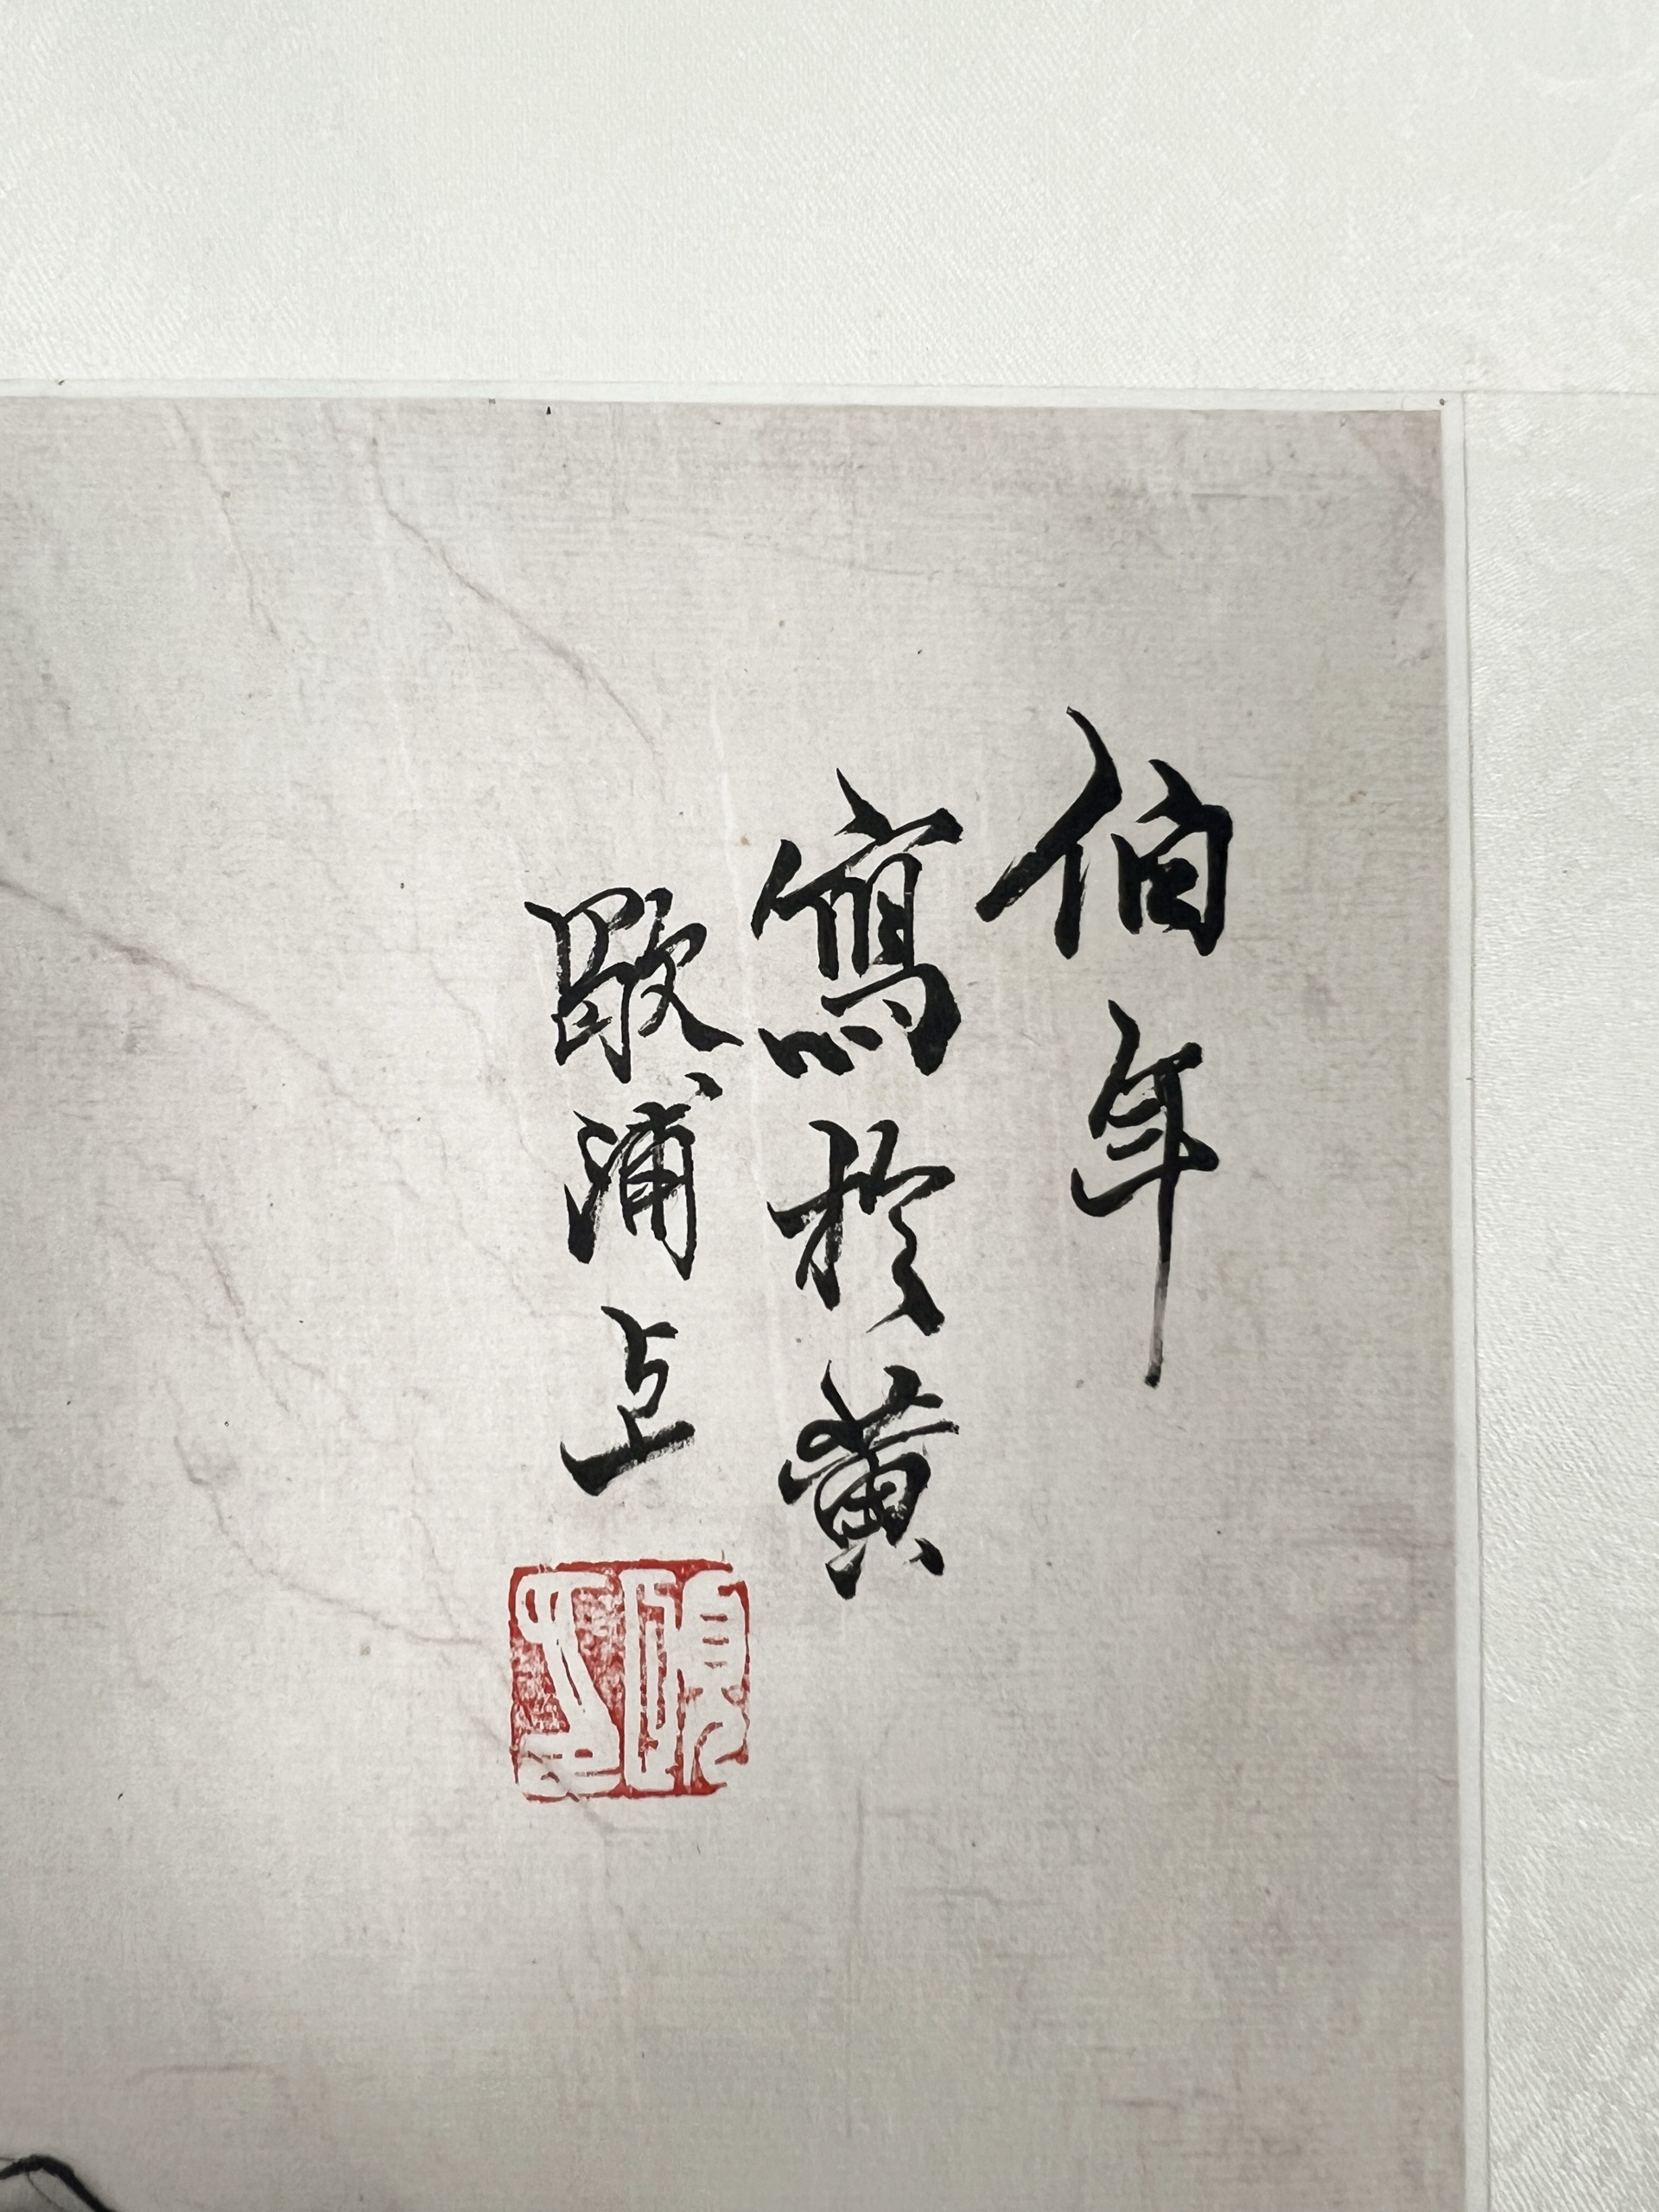 伯年
寫於黃
歇浦上
頤印